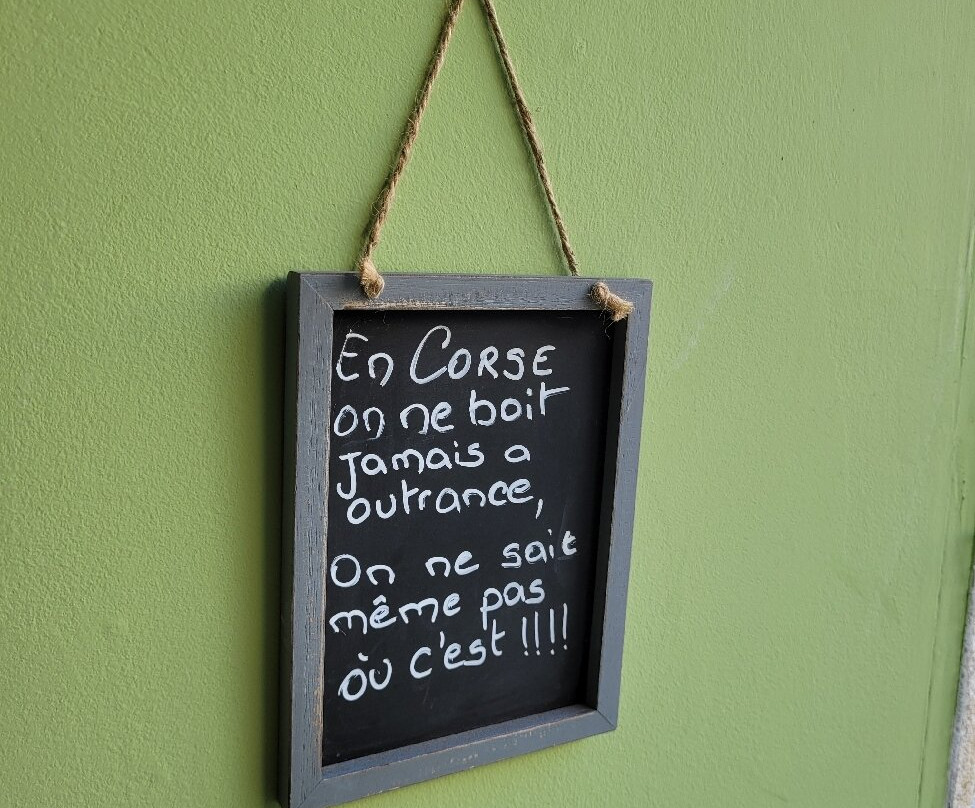 En CORSE
on ne boit
Jamais a
outrance,
On ne sait
même pas
où c'est !!!!